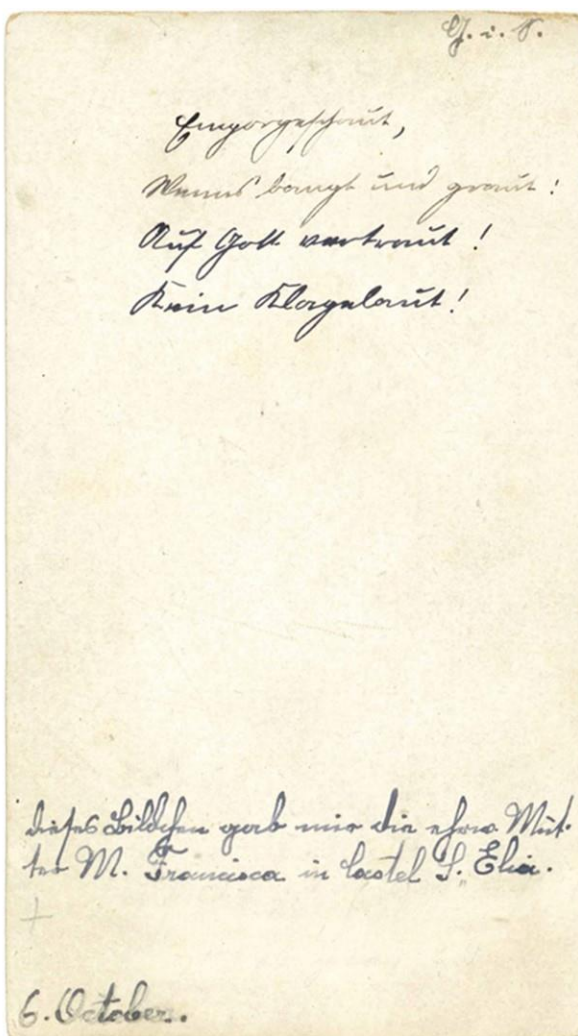 G. i. S.
Emporgeschaut,
Wenns bangt und graut!
Auf Gott vertraut!
Kein Klagelaut!
dieses Bildchen gab mir die ehrw. Mut-
ter M. Francisca in Castel S. Elia.
+
6. October.